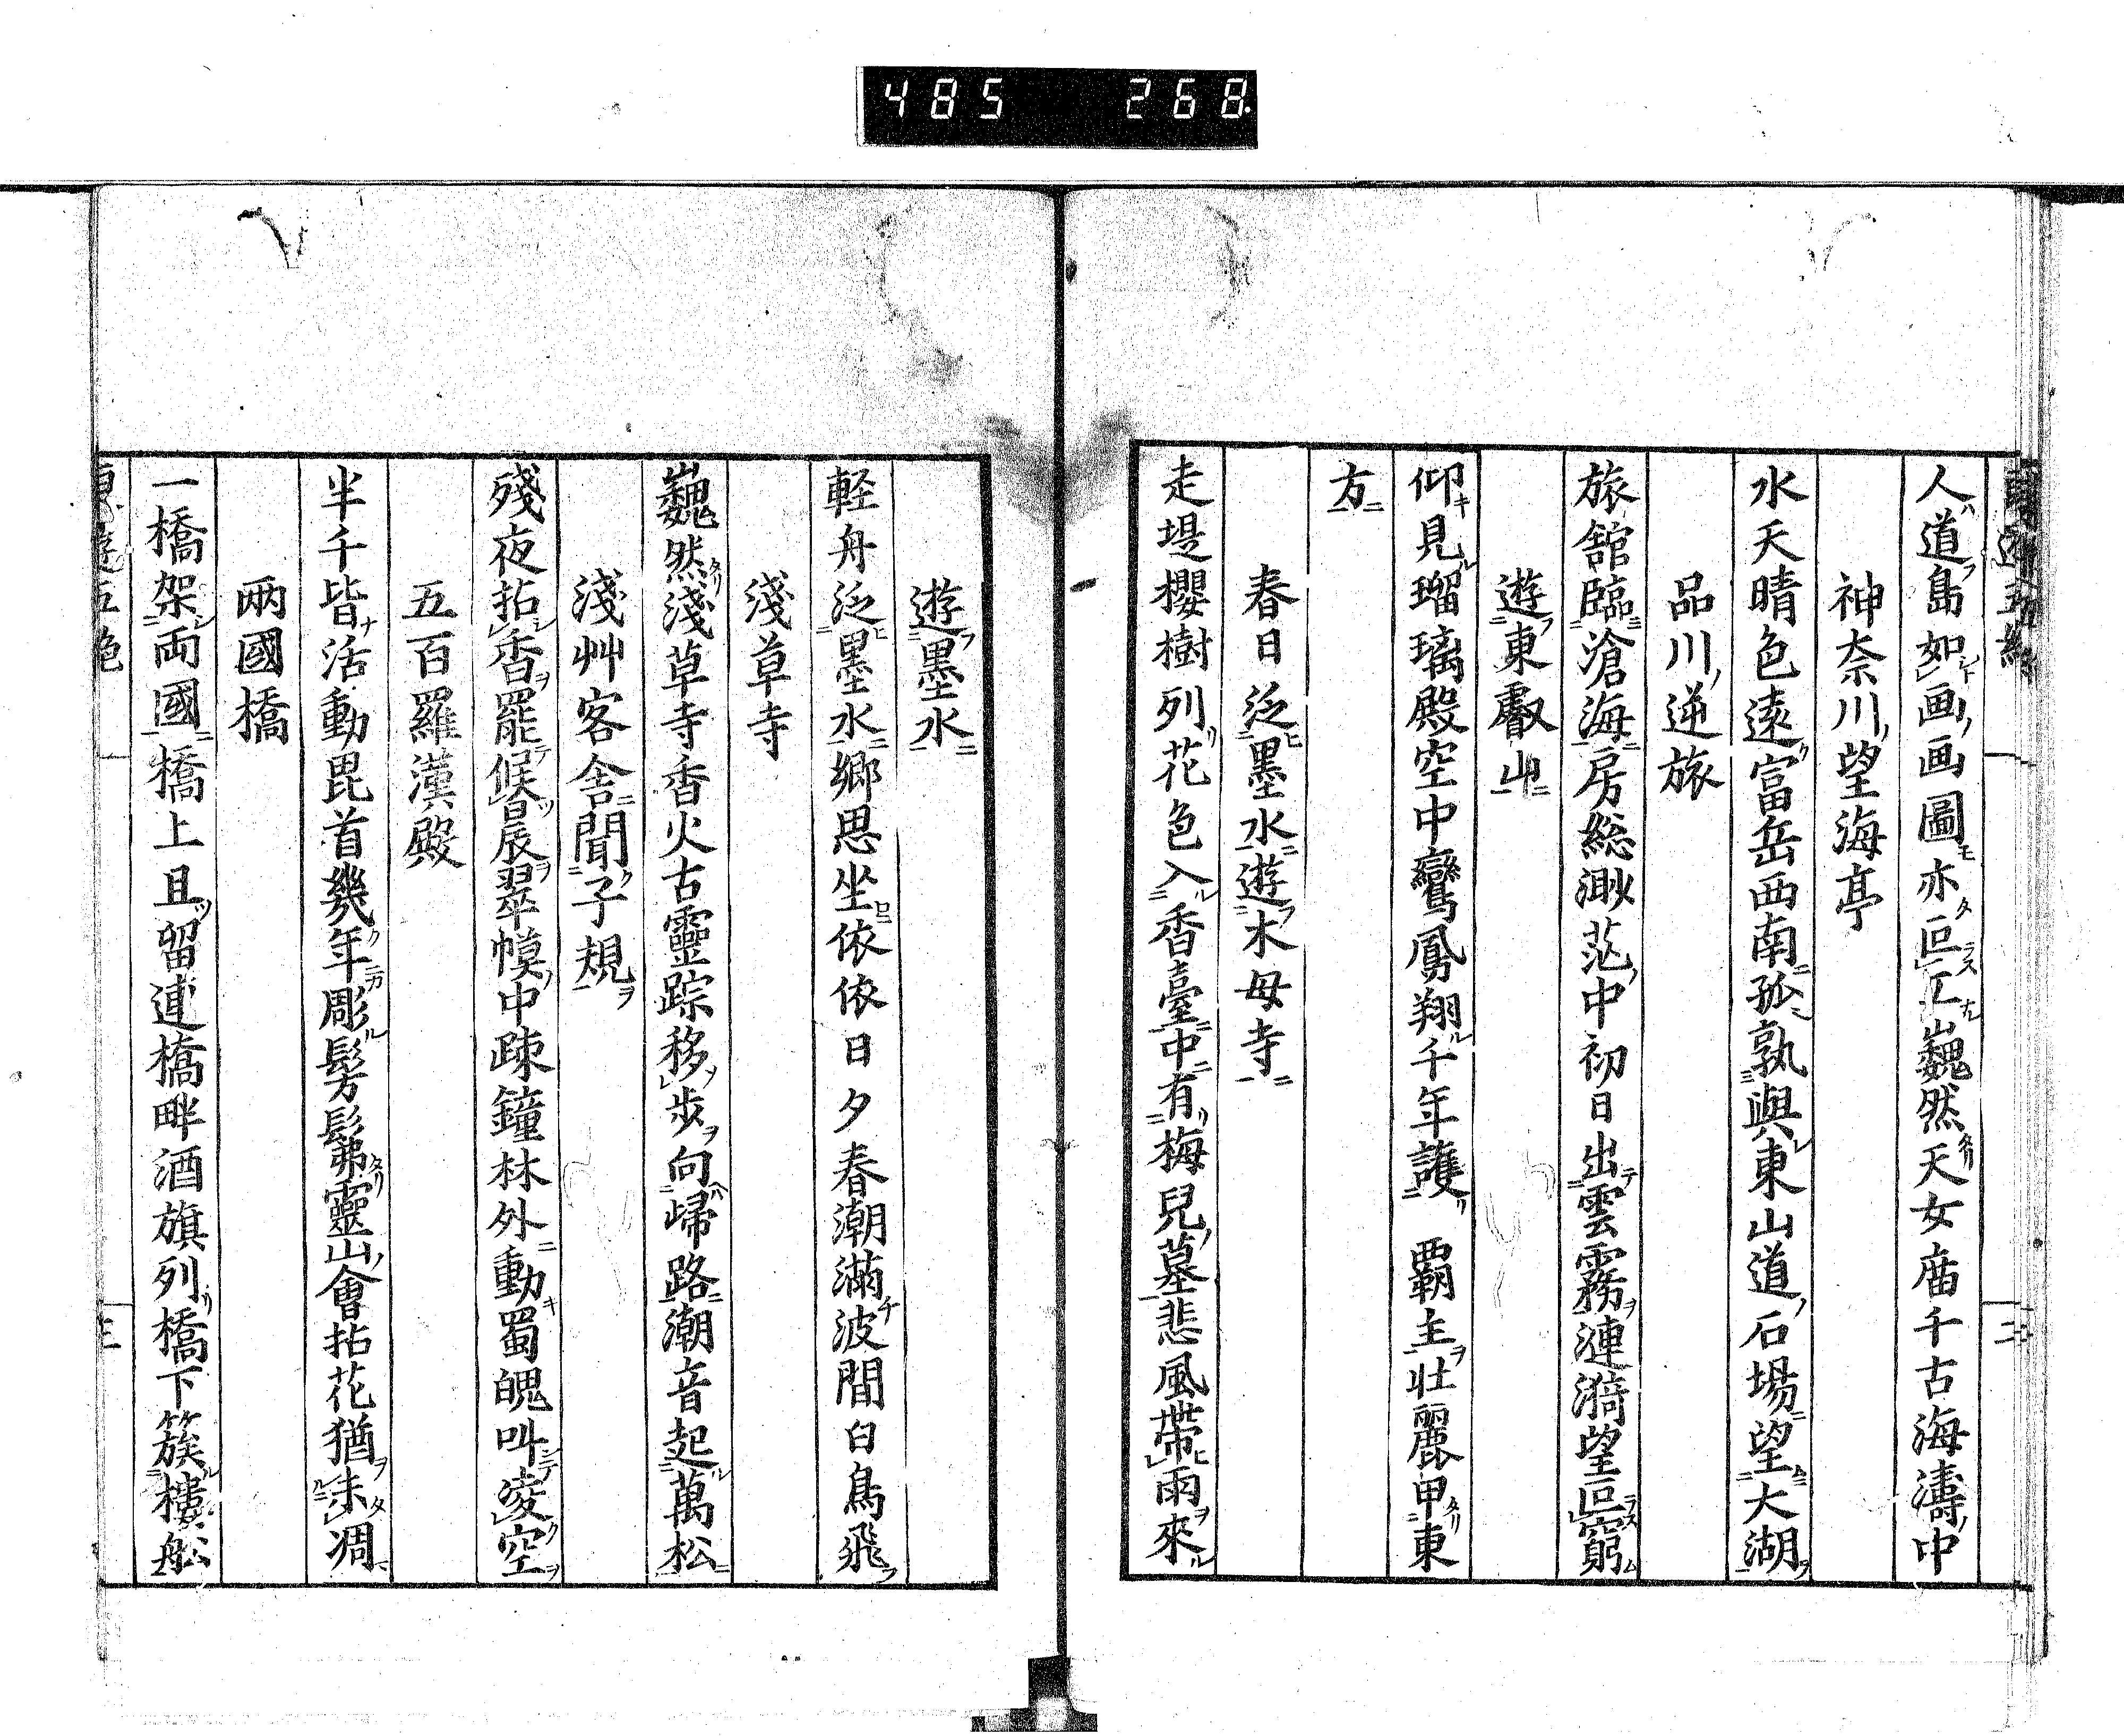 485 268
人道島如画画圖亦叵工巍然天女庿千古海濤中
神奈川望海亭
水天晴色遠富岳西南孤孰與東山道石場望大湖
品川逆旅
旅舘臨滄海房総渺茫中初日出雲霧漣漪望叵窮
遊東叡山
仰見瑠璃殿空中鸞鳳翔千年護覇主壮麗甲東
方
春日泛墨水遊木母寺
走堤櫻樹列花色入香臺中有梅兒墓悲風帶雨來
遊墨水
軽舟泛墨水郷思坐依依日夕春潮滿波間白鳥飛
淺草寺
巍然淺草寺香火古靈踪移歩向歸路潮音起萬松
淺艸客舎聞子規
殘夜拈香罷候晨翠幙中疎鐘林外動蜀魄叫凌空
五百羅漢殿
半千皆活動毘首幾年彫髣髴靈山會拈花猶未凋
兩國橋
一橋架両國橋上且留連橋畔酒旗列橋下簇樓舩
東遊五絶 三